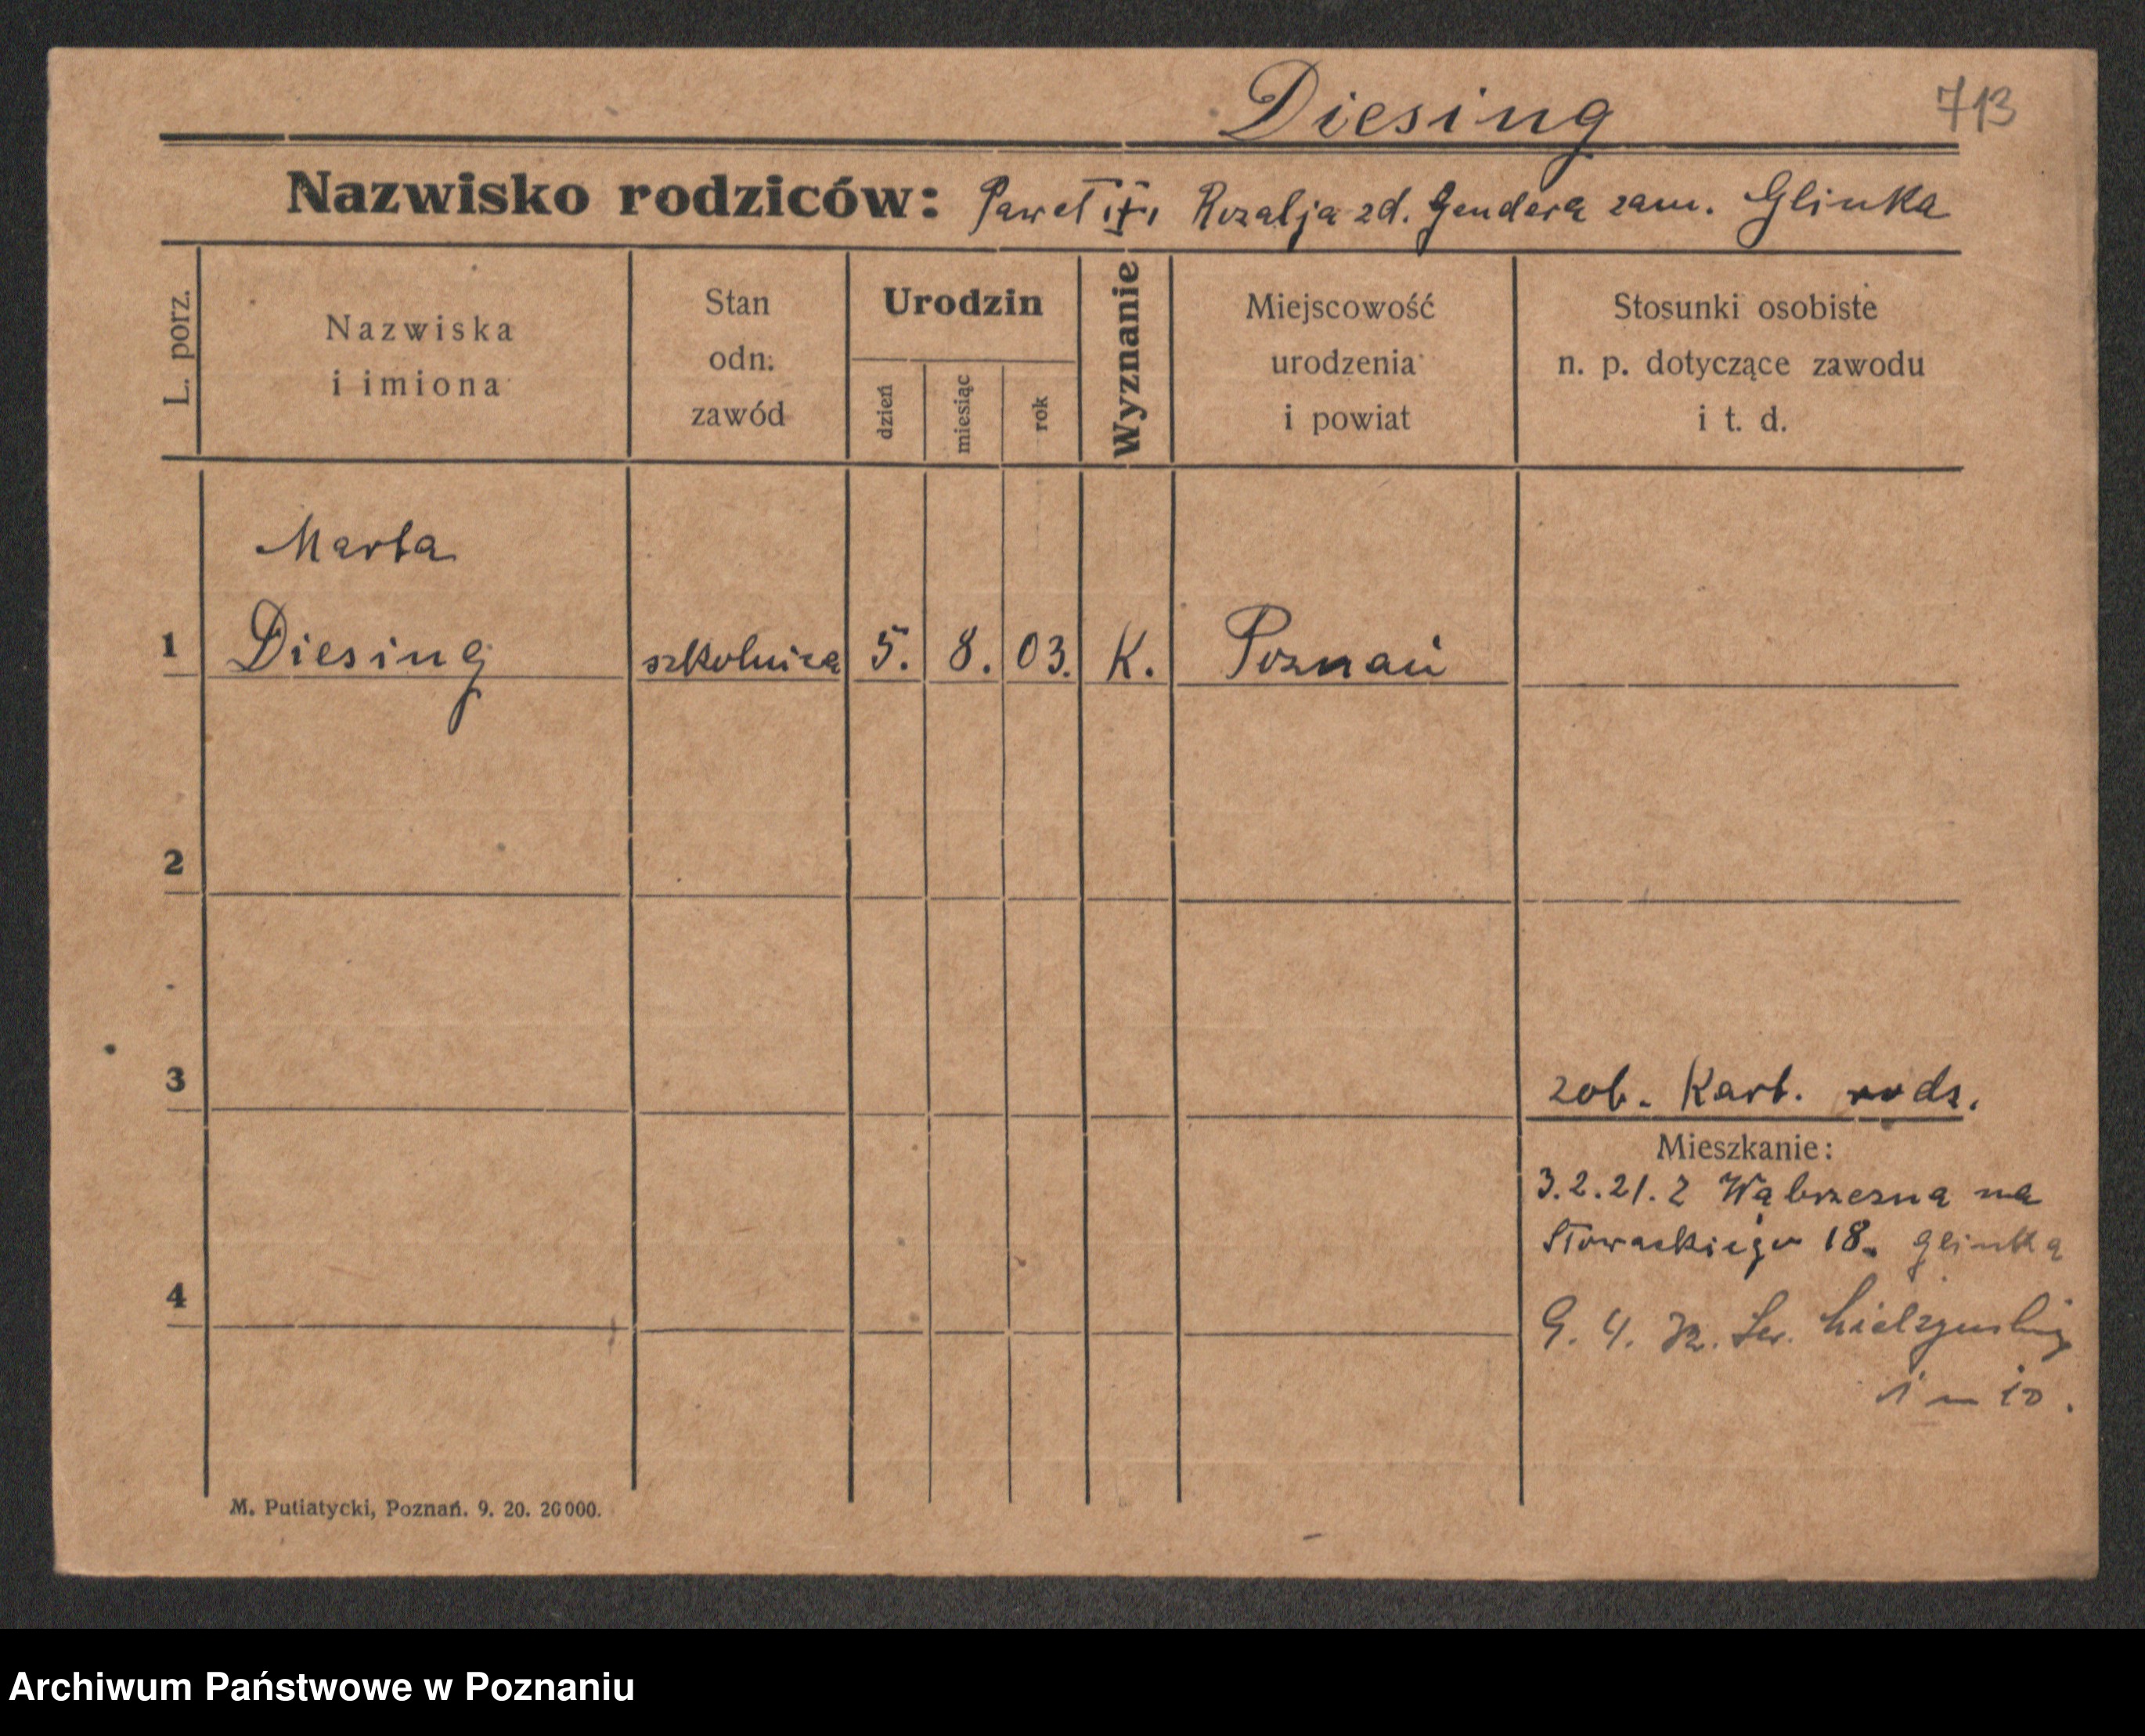 Diesing 713
Nazwisko rodziców: Paweł Rozalja zd. Gendera zam. Glinka
L. porz.
Nazwiska
i imiona
Stan
odn.
zawód
Urodzin
dzień
miesiąc
rok
Wyznanie
Miejscowość
urodzenia
i powiat
Stosunki osobiste
n. p. dotyczące zawodu
i t. d.
Marta
1 Diesing szkolnica 5. 8. 03. K. Poznań
2
3 zob. Kart. rodz.
Mieszkanie:
3.2.21. z Wąbrzezna na
Słowackiego 18. Glinka
4
M. Putiatycki, Poznań. 9. 20. 20000.
Archiwum Państwowe w Poznaniu